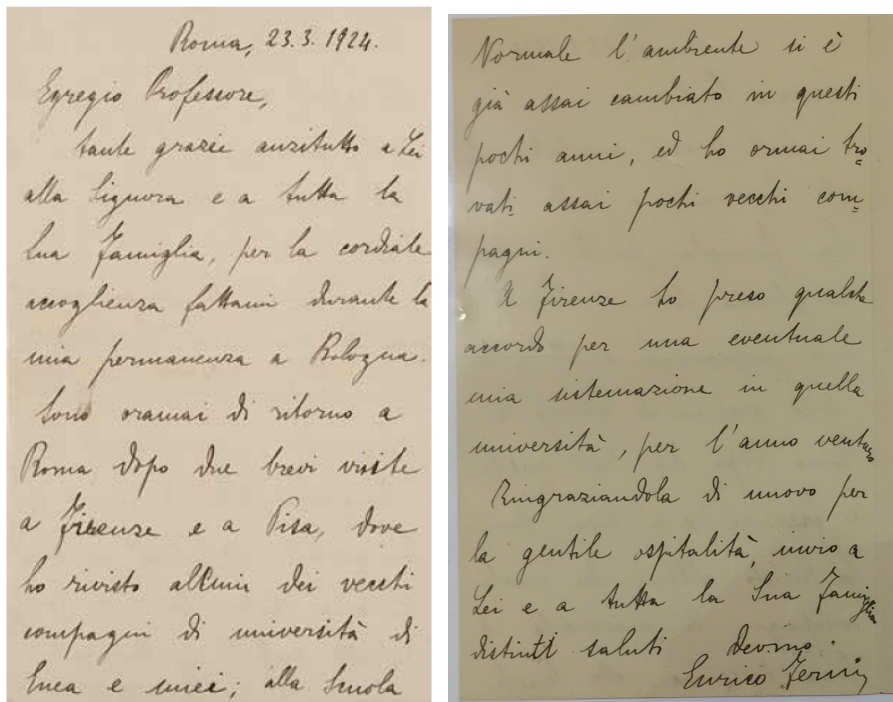 Roma, 23.3.1924.
Egregio Professore,
tante grazie anzitutto a Lei
alla Signora e a tutta la
Sua famiglia, per la cordiale
accoglienza fattami durante la
mia permanenza a Bologna.
Sono oramai di ritorno a
Roma dopo due brevi visite
a Firenze e a Pisa, dove
ho rivisto alcuni dei vecchi
compagni di università di
Enea e miei; alla Scuola
Normale l'ambiente si è
già assai cambiato in questi
pochi anni, ed ho ormai tro=
vati assai pochi vecchi com=
pagni.
A Firenze ho preso qualche
accordo per una eventuale
mia sistemazione in quella
università, per l'anno venturo
Ringraziandola di nuovo per
la gentile ospitalità, invio a
Lei e a tutta la Sua famiglia
distinti saluti Devmo.
Enrico Fermi